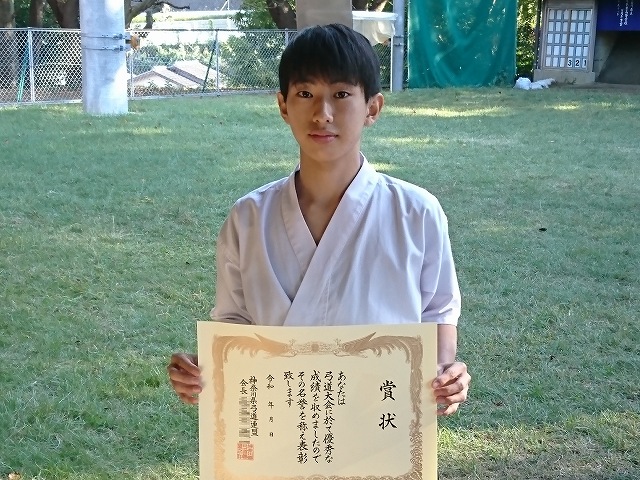 賞状
あなたは
弓道大会に於て優秀な
成績を収めましたので
その名誉を称え表彰
致します
令和 年 月 日
神奈川県弓道連盟
会長
321